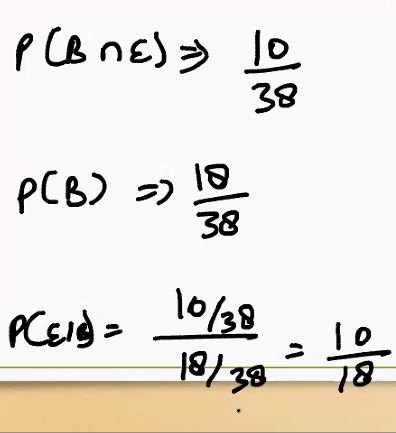 P(B ∩ E) ⇒ 10/38
P(B) ⇒ 18/38
P(E|B) = (10/38)/(18/38) = 10/18